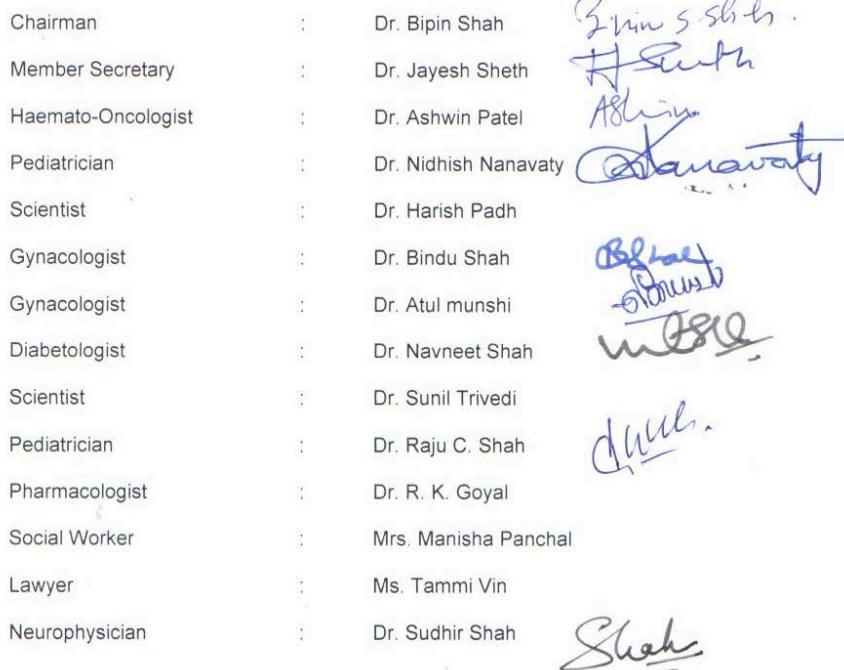 Chairman : Dr. Bipin Shah Bipin S. Shah.
Member Secretary : Dr. Jayesh Sheth
Haemato-Oncologist : Dr. Ashwin Patel Ashwin
Pediatrician : Dr. Nidhish Nanavaty Nanavaty
Scientist : Dr. Harish Padh
Gynacologist : Dr. Bindu Shah
Gynacologist : Dr. Atul munshi
Diabetologist : Dr. Navneet Shah
Scientist : Dr. Sunil Trivedi
Pediatrician : Dr. Raju C. Shah
Pharmacologist : Dr. R. K. Goyal
Social Worker : Mrs. Manisha Panchal
Lawyer : Ms. Tammi Vin
Neurophysician : Dr. Sudhir Shah Shah